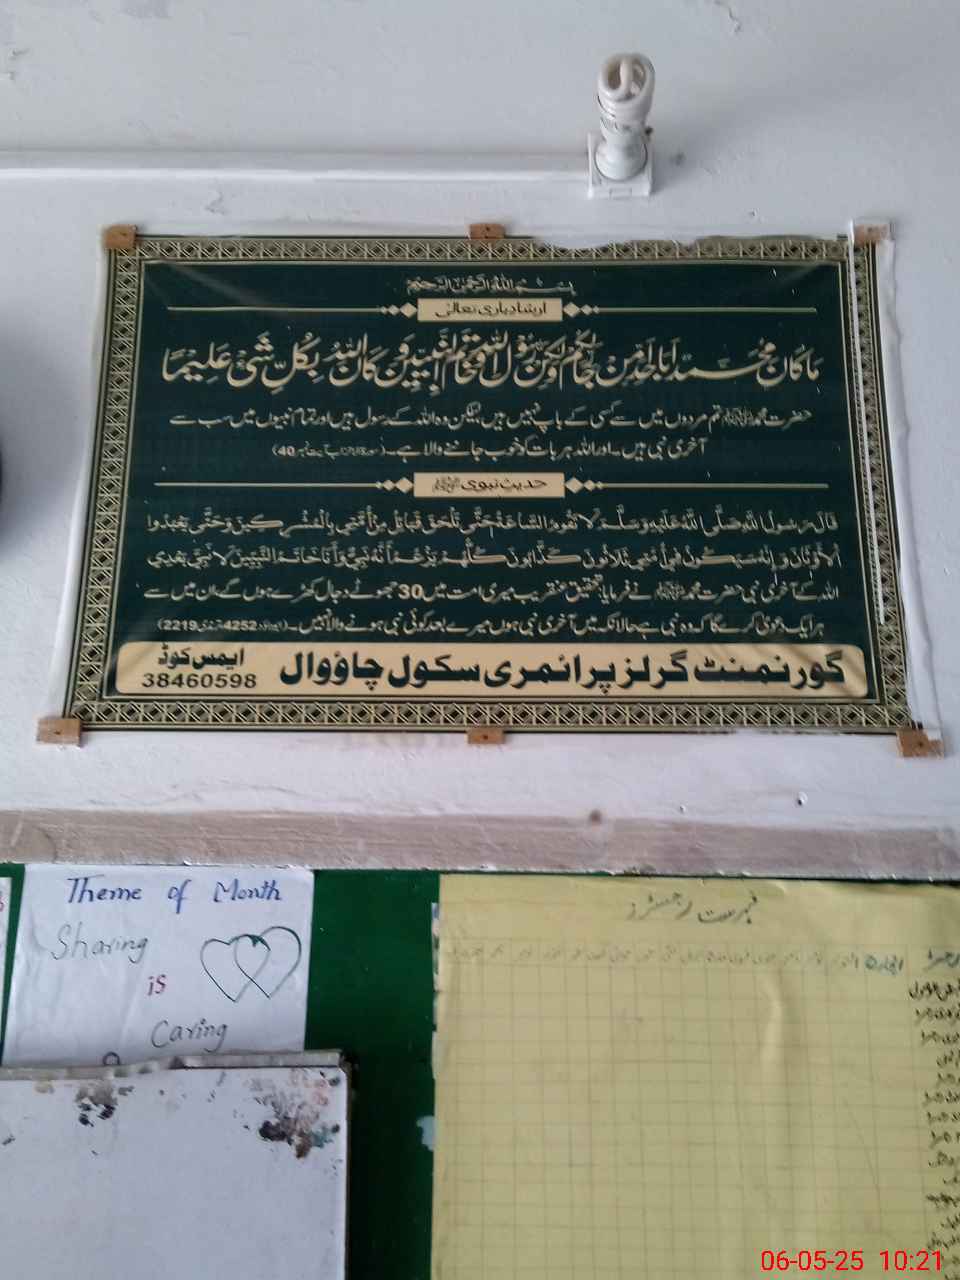 بِسْمِ اللّٰهِ الرَّحْمٰنِ الرَّحِيْمِ
ارشاد باری تعالیٰ
مَا كَانَ مُحَمَّدٌ اَبَآ اَحَدٍ مِّنْ رِّجَالِكُمْ وَلٰكِنْ رَّسُوْلَ اللّٰهِ وَخَاتَمَ النَّبِيّٖنَ وَ كَانَ اللّٰهُ بِكُلِّ شَيْءٍ عَلِيْمًا
حضرت محمد ﷺ تم مردوں میں سے کسی کے باپ نہیں ہیں، لیکن وہ اللہ کے رسول ہیں اور تمام نبیوں میں سب سے
آخری نبی ہیں۔ اور اللہ ہر بات کو خوب جاننے والا ہے۔ (سورۃ الاحزاب آیت نمبر 40)
حدیث نبوی ﷺ
قَالَ رَسُوْلُ اللّٰهِ صَلَّى اللّٰهُ عَلَيْهِ وَسَلَّمَ لَا تَقُوْمُ السَّاعَةُ حَتّٰى تَلْحَقَ قَبَائِلُ مِنْ أُمَّتِي بِالْمُشْرِكِيْنَ وَحَتّٰى يَعْبُدُوا
الْأَوْثَانَ وَإِنَّهُ سَيَكُوْنُ فِيْ أُمَّتِي ثَلَاثُوْنَ كَذَّابُوْنَ كُلُّهُمْ يَزْعُمُ أَنَّهُ نَبِيٌّ وَأَنَا خَاتَمُ النَّبِيِّيْنَ لَا نَبِيَّ بَعْدِي
اللہ کے آخری نبی حضرت محمد ﷺ نے فرمایا: تحقیق عنقریب میری امت میں 30 جھوٹے دجال کھڑے ہوں گے، ان میں سے
ہر ایک دعویٰ کرے گا کہ وہ نبی ہے حالانکہ میں آخری نبی ہوں میرے بعد کوئی نبی ہونے والا نہیں۔ (ابوداؤد 4252 ترمذی 2219)
گورنمنٹ گرلز پرائمری سکول چاؤوال
ایمس کوڈ
38460598
Theme of Month
Sharing
is
Caring
فہرست رجسٹرز
06-05-25 10:21